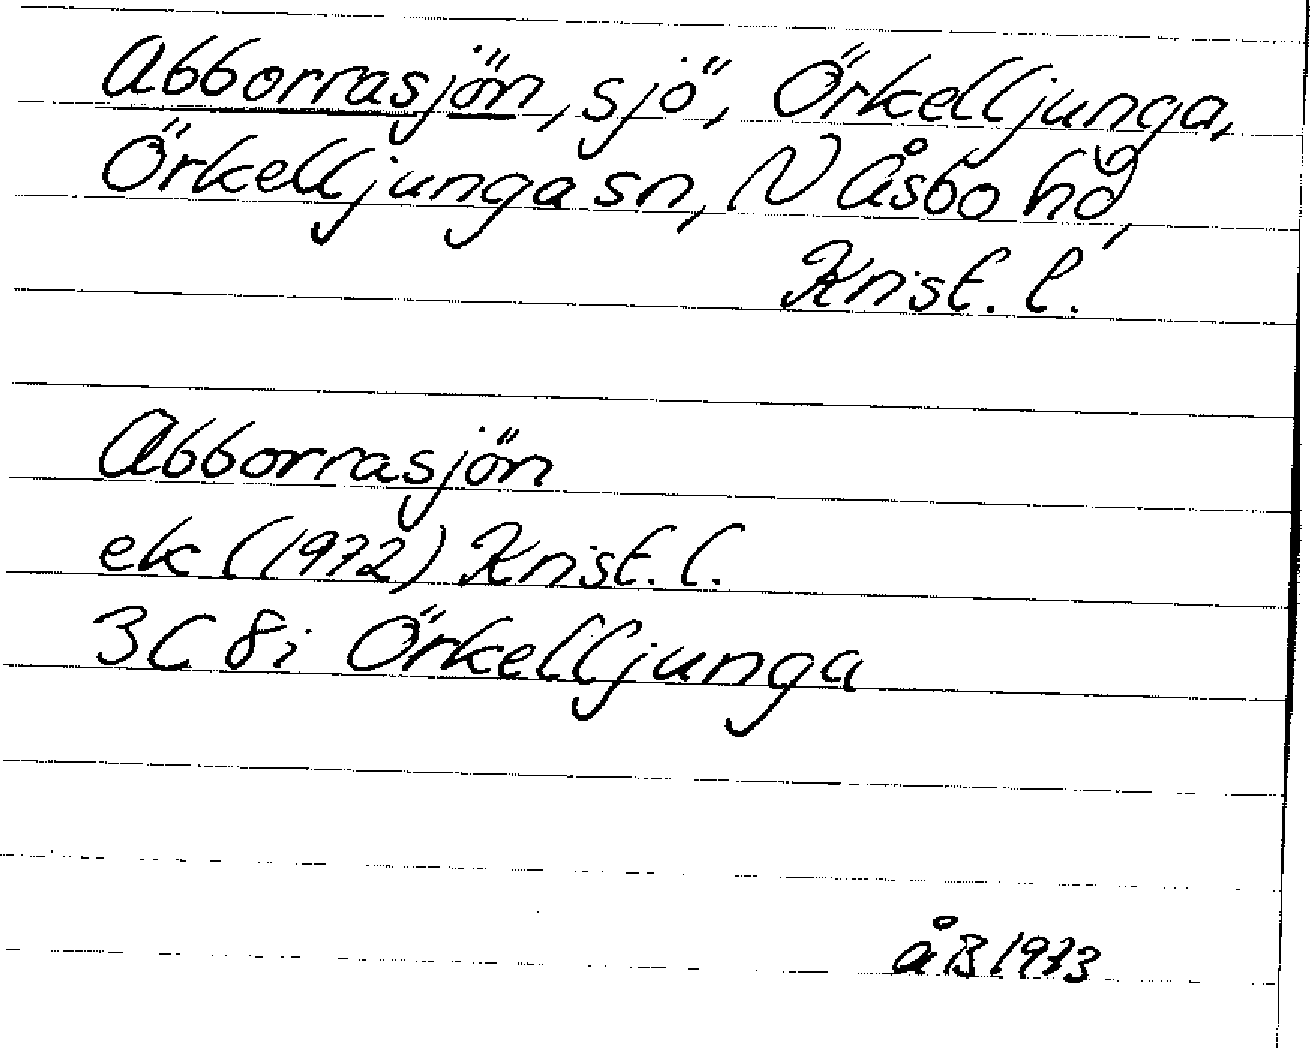 Abborrasjön, sjö, Örkelljunga,
Örkelljunga sn, N Åsbo hd,
Krist. l.
Abborrasjön
ek (1972) Krist. l.
3C 8i Örkelljunga
åB 1973